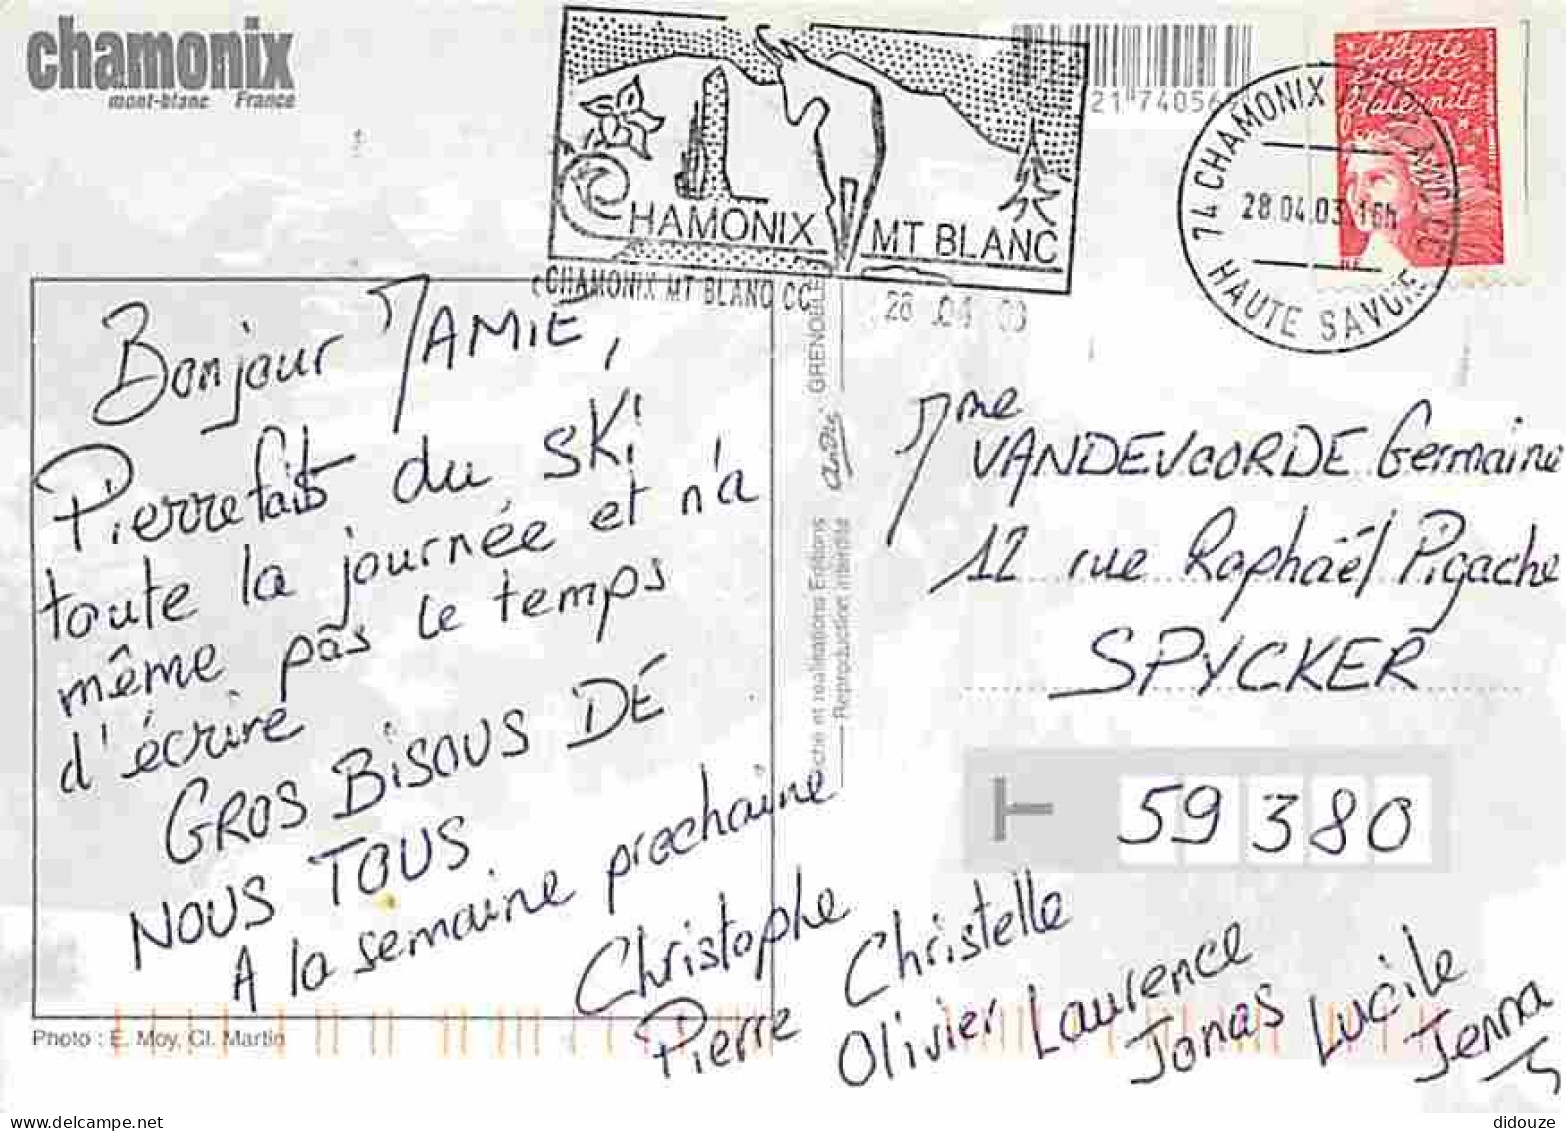 chamonix
mont-blanc France
CHAMONIX MT BLANC
CHAMONIX MT BLANC CC
28 04 03
21 74056
Liberté
égalité
fraternité
74 CHAMONIX
28.04.03 16h
HAUTE SAVOIE
Bonjour MAMIE,
Pierre fait du ski
toute la journée et n'a
même pas le temps
d'écrire
GROS BISOUS DE
NOUS TOUS
A la semaine prochaine
Christophe Christelle
Pierre Olivier Laurence
Jonas Lucile
Jenna
GRENOBLE
et réalisations Editions
Reproduction interdite
Mme VANDEVOORDE Germaine
12 rue Raphaël Pigache
SPYCKER
59380
Photo : E. Moy, Cl. Martin
didouze